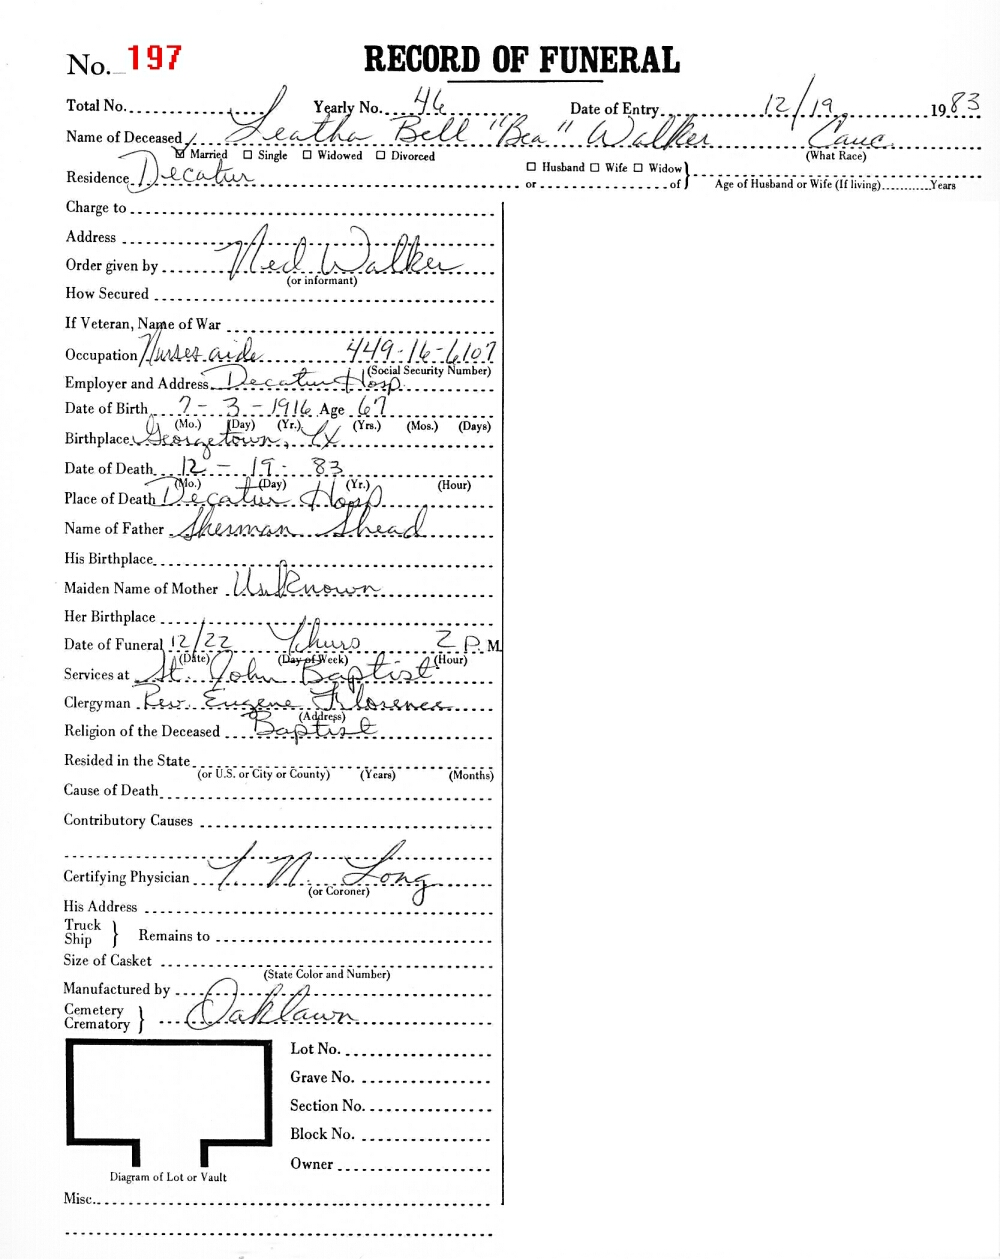 No. 197 RECORD OF FUNERAL
Total No. Yearly No. 46 Date of Entry 12/19 1983
Name of Deceased Leatha Bell "Bea" Walker Cauc.
☑ Married ☐ Single ☐ Widowed ☐ Divorced (What Race)
Residence Decatur ☐ Husband ☐ Wife ☐ Widow
or of Age of Husband or Wife (If living) Years
Charge to
Address
Order given by Ned Walker
(or informant)
How Secured
If Veteran, Name of War
Occupation Nurses aide 449-16-6107
(Social Security Number)
Employer and Address Decatur Hosp.
Date of Birth 7-3-1916 Age 67
(Mo.) (Day) (Yr.) (Yrs.) (Mos.) (Days)
Birthplace Georgetown, TX
Date of Death 12-19-83
(Mo.) (Day) (Yr.) (Hour)
Place of Death Decatur Hosp
Name of Father Sherman Shead
His Birthplace
Maiden Name of Mother Unknown
Her Birthplace
Date of Funeral 12/22 Thurs 2 P. M.
(Date) (Day of Week) (Hour)
Services at St. John Baptist
Clergyman Rev. Eugene Florence
(Address)
Religion of the Deceased Baptist
Resided in the State
(or U.S. or City or County) (Years) (Months)
Cause of Death
Contributory Causes
Certifying Physician T. N. Long
(or Coroner)
His Address
Truck
Ship } Remains to
Size of Casket
(State Color and Number)
Manufactured by
Cemetery
Crematory } Oaklawn
Lot No.
Grave No.
Section No.
Block No.
Owner
Diagram of Lot or Vault
Misc.